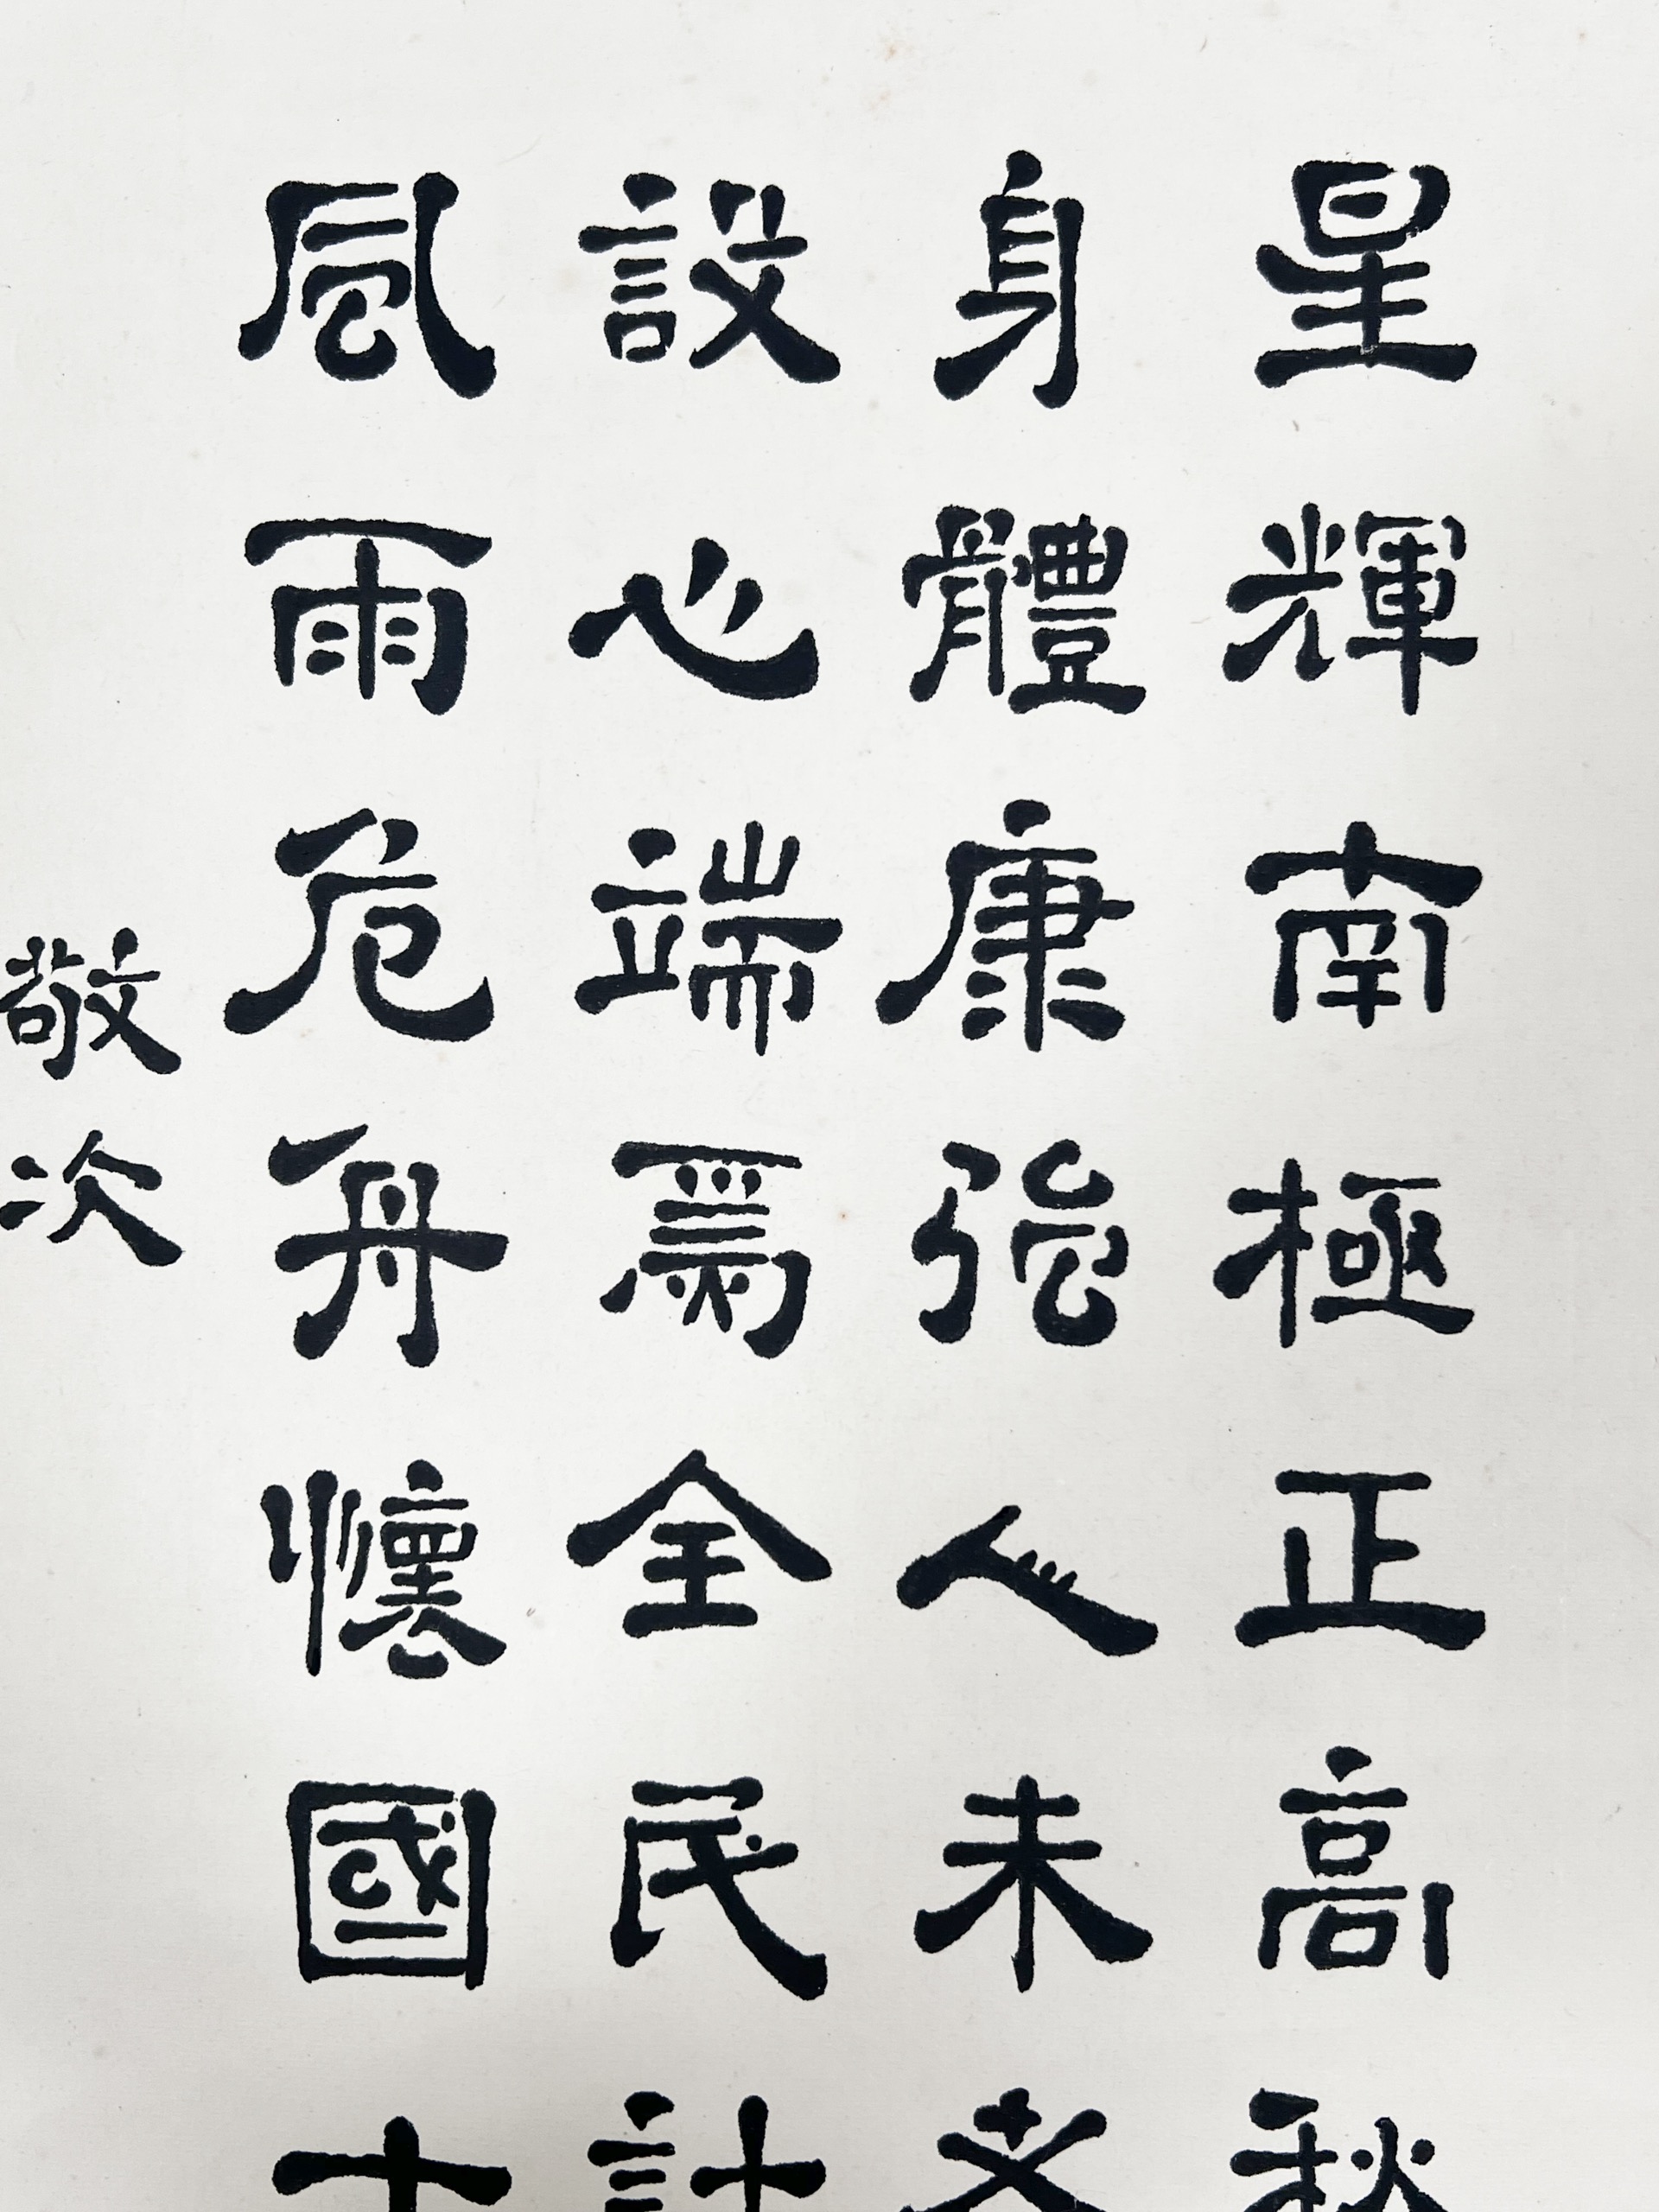 星輝南極正高秋
身體康強人未老
設心端爲全民計
風雨危舟懷國士
敬次